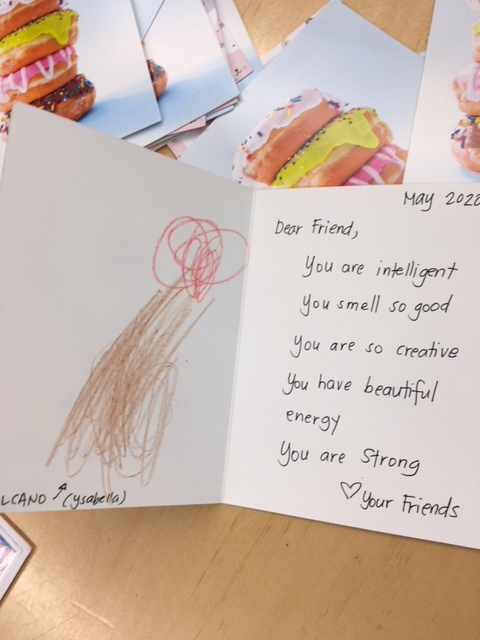 May 2022
Dear Friend,
You are intelligent
You smell so good
You are so creative
You have beautiful
energy
You are Strong
♡ Your Friends
LCANO (ysabella)